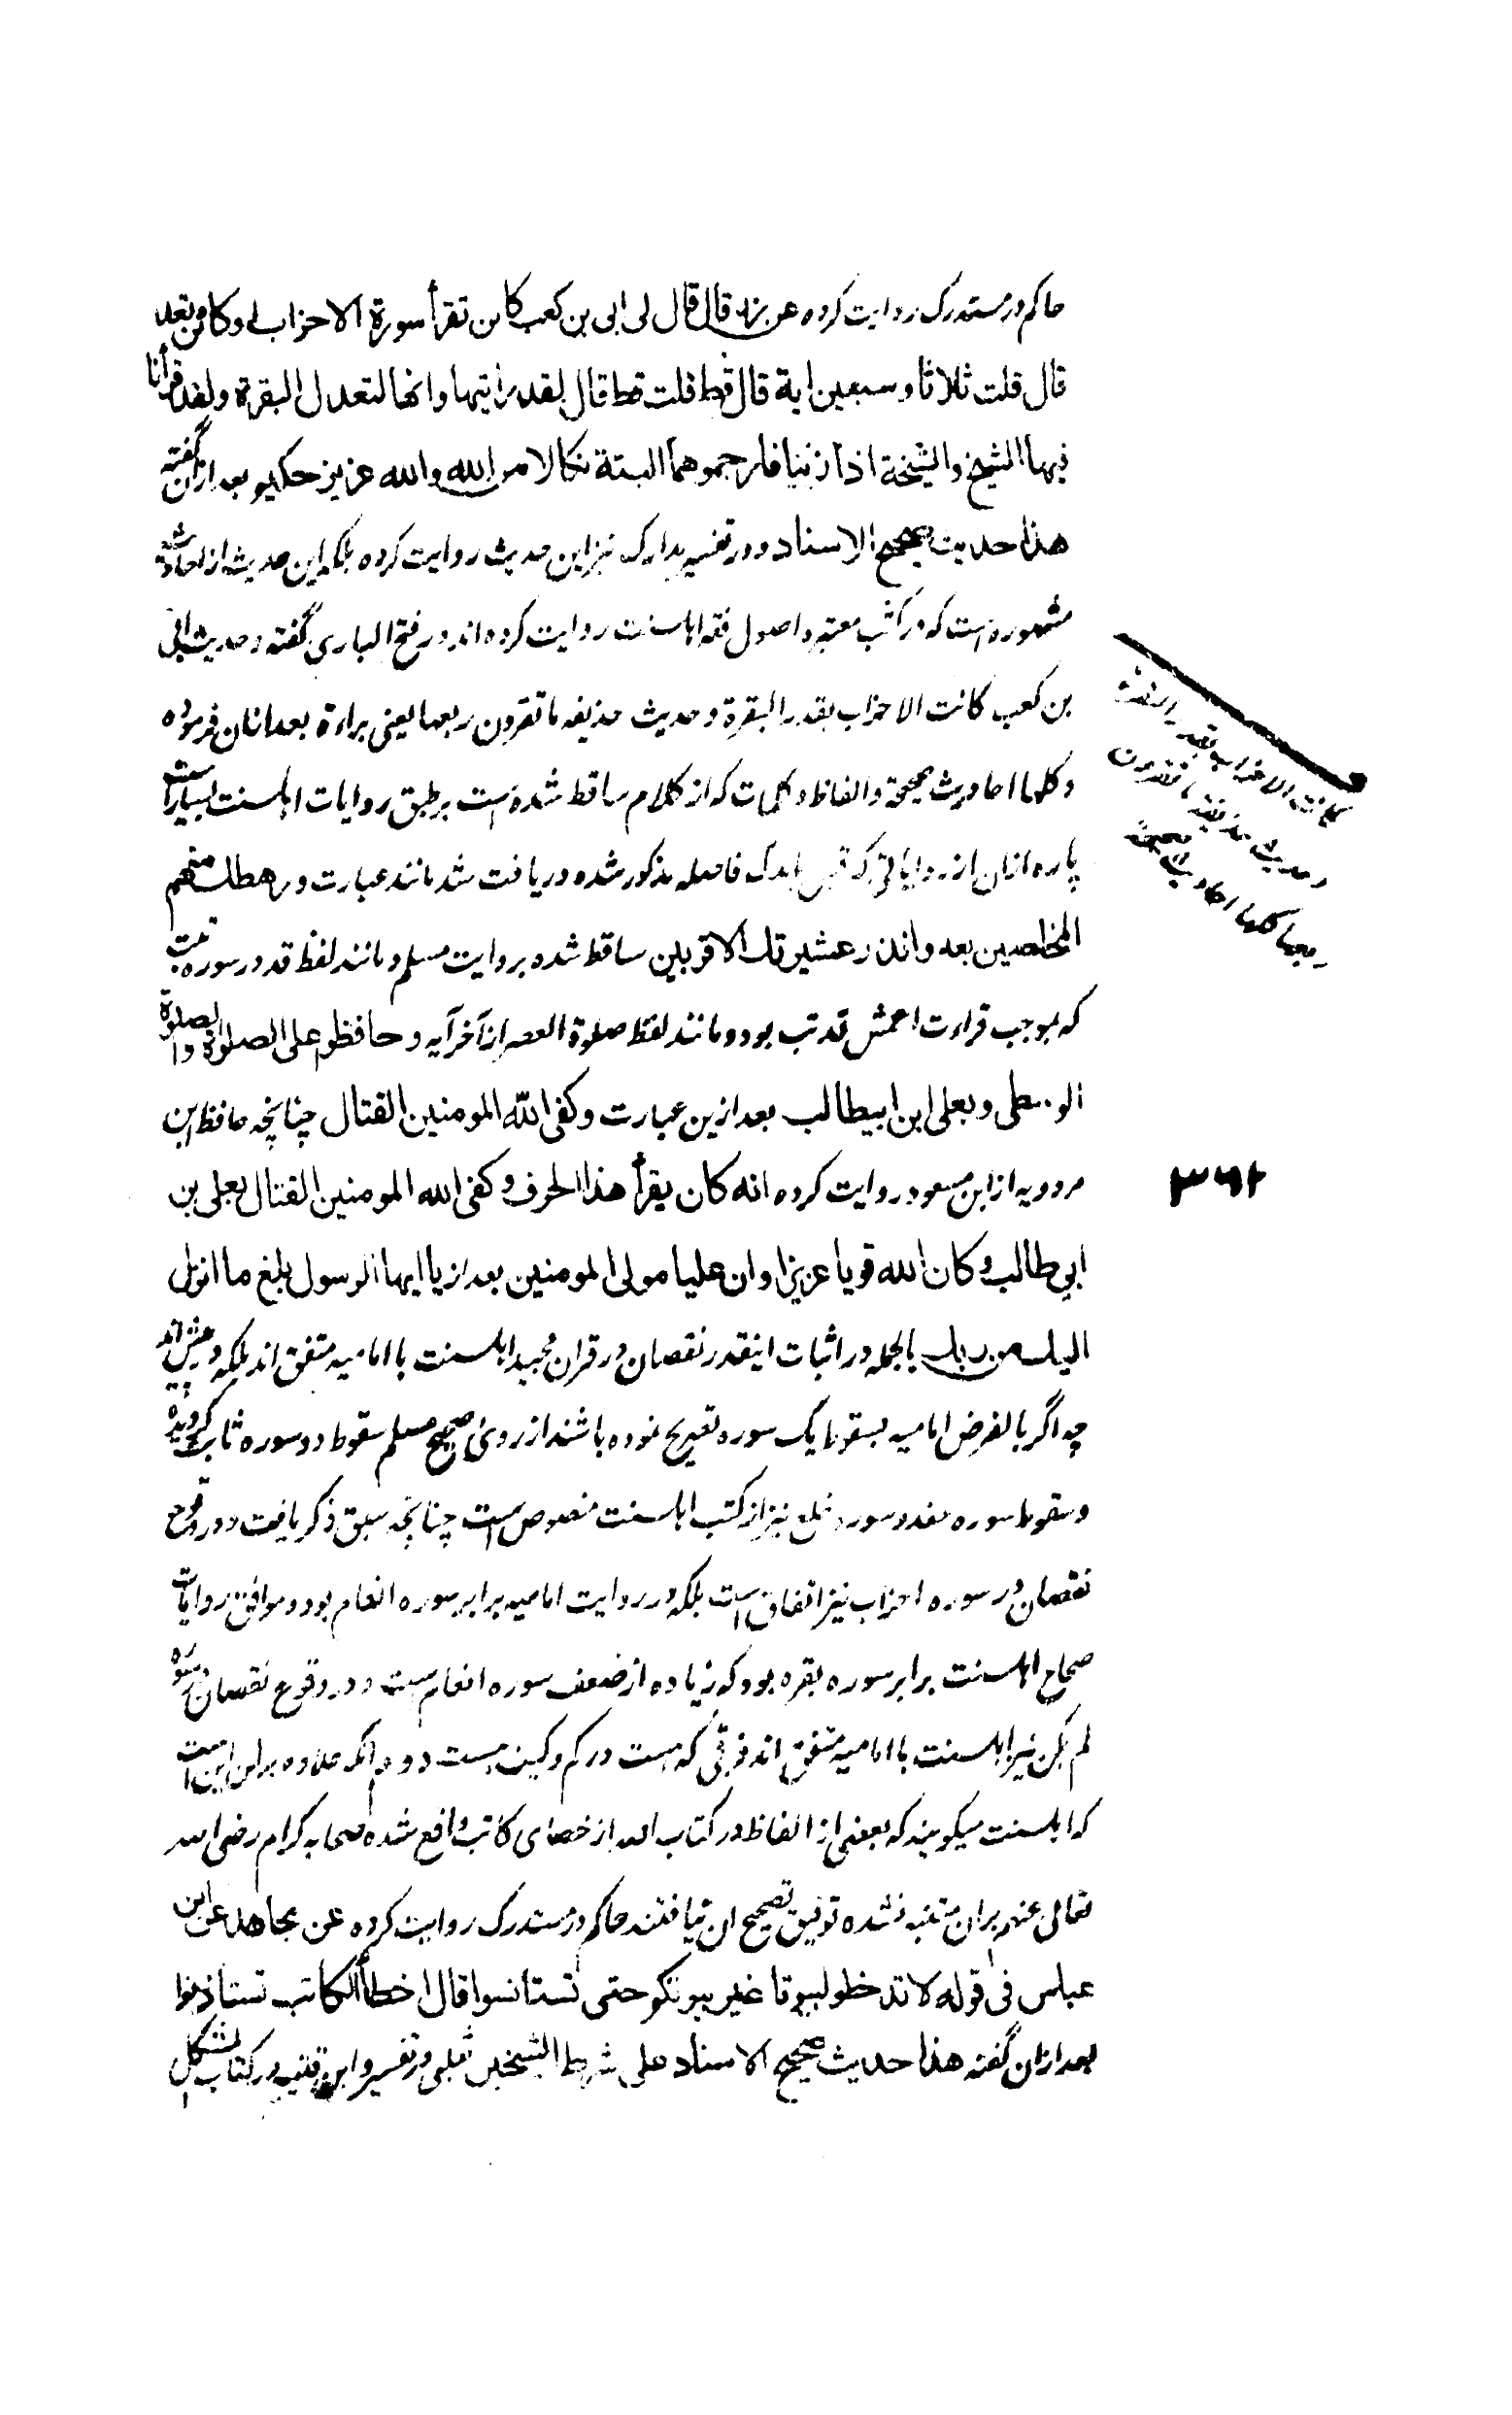 حاکم در مستدرک روایت کرده عن زر قال قال لی ابی بن کعب کاین تقرأ سورة الاحزاب او کاین تعد
قال قلت ثلاثا و سبعین ایة قال قط قلت قط قال لقد رایتها و انها لتعدل البقرة و لقد قرأنا
فیها الشیخ و الشیخة اذا زنیا فارجموهما البتة نکالا من الله و الله عزیز حکیم بعد ازان گفته
هذا حدیث صحیح الاسناد و در تفسیر مدارک نیز این حدیث روایت کرده بلکه این حدیث از احادیث
مشهوره است که در کتب معتبره اصول فقه اهلسنت روایت کرده اند و در فتح الباری گفته و حدیث ابی
بن کعب کانت الاحزاب بقدر البقرة و حدیث حذیفه ما تقرون ربعها یعنی براءة بعد ازان فرموده
و کلها احادیث صحیحة و الفاظ و کلمات که از کلام ساقط شده است بر طبق روایات اهلسنت بسیار است
پاره ازان از روایاتی که قبل باندک فاصله مذکور شده دریافت شد مانند عبارت و رهطک منهم
المخلصین بعد و انذر عشیرتک الاقربین ساقط شده بروایت مسلم و مانند لفظ قد در سوره تبت
که بموجب قراءت اعمش قد تب بود و مانند لفظ صلوة العصر از آخر آیه و حافظوا علی الصلوة و الصلوة
الوسطی و بعلی ابن ابیطالب بعد ازین عبارت و کفی الله المومنین القتال چنانچه حافظ ابن
مردویه از ابن مسعود روایت کرده انه کان یقرأ هذا الحرف و کفی الله المومنین القتال بعلی بن
ابی طالب و کان الله قویا عزیزا و ان علیا مولی المومنین بعد از یا ایها الرسول بلغ ما انزل
الیک من ربک بالجمله در اثبات اینقدر نقصان در قران مجید اهلسنت با امامیه متفق اند بلکه در پیش اند
چه اگر بالفرض امامیه بسقوط یک سوره تصریح نموده باشند از روی صحیح مسلم سقوط دو سوره ثابت گردیده
و سقوط سوره حفد و سوره خلع نیز از کتب اهلسنت منصوص است چنانچه سبق ذکر یافت و در وقوع
نقصان در سوره احزاب نیز اتفاق است بلکه در روایت امامیه برابر سوره انعام بود و موافق روایات
صحاح اهلسنت برابر سوره بقره بود که زیاده از ضعف سوره انعام است و در وقوع نقصان در سوره
لم یکن نیز اهلسنت با امامیه متفق اند فرقی که هست در کم و کیف هست دوم آنکه علاوه بر این این است
که اهلسنت میگویند که بعضی از الفاظ در کتاب الله از خطای کاتب واقع شده صحابه کرام رضی الله
تعالی عنهم بران متنبه نشده توفیق تصحیح ان نیافتند حاکم در مستدرک روایت کرده عن مجاهد عن ابن
عباس فی قوله لا تدخلوا بیوتا غیر بیوتکم حتی تستانسوا قال اخطأ الکاتب تستاذنوا
بعد ازان گفته هذا حدیث صحیح الاسناد علی شرط الشیخین ثعلبی در تفسیر و ابن قتیبه در کتاب مشکل
کانت الاحزاب بقدر البقرة
و حدیث حذیفه ما تقرون
ربعها کلها احادیث صحیحة
۳۶۲